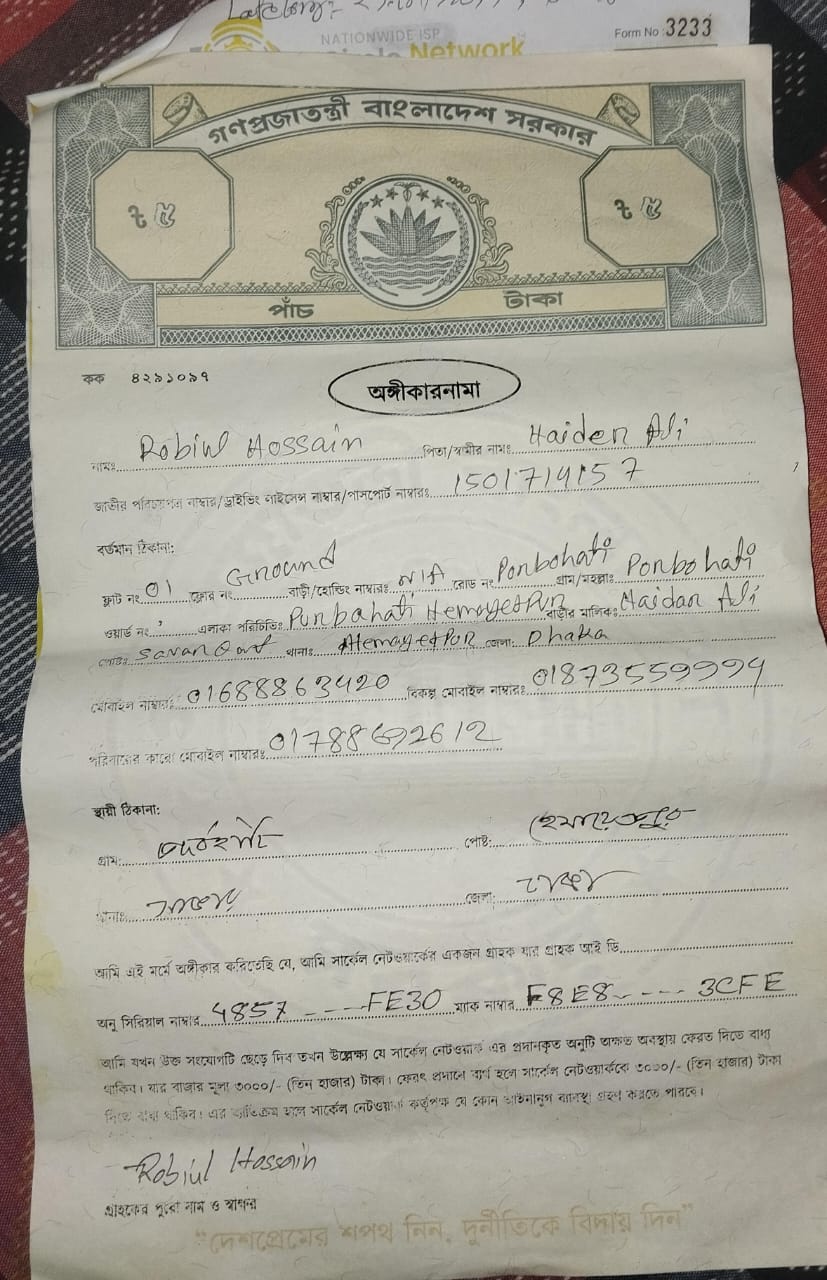 NATIONWIDE ISP
Form No : 3233
Circle Network
গণপ্রজাতন্ত্রী বাংলাদেশ সরকার
৳ ৫ ৳ ৫
পাঁচ টাকা
কক ৪২৯১০৯৭
অঙ্গীকারনামা
নামঃ Robiul Hossain পিতা/স্বামীর নামঃ Haider Ali
জাতীয় পরিচয়পত্র নাম্বার/ড্রাইভিং লাইসেন্স নাম্বার/পাসপোর্ট নাম্বারঃ 1501714157
বর্তমান ঠিকানা:
ফ্লাট নং 01 ফ্লোর নং Ground বাড়ী/হোল্ডিং নাম্বারঃ N/A রোড নং Ponbohati গ্রাম/মহল্লাঃ Ponbohati
ওয়ার্ড নং এলাকা পরিচিতিঃ Purbahati Hemayetpur বাড়ীর মালিকঃ Haidar Ali
পোষ্টঃ থানাঃ Hemayetpur জেলা: Dhaka
মোবাইল নাম্বারঃ 01688863420 বিকল্প মোবাইল নাম্বারঃ 01873559994
পরিবারের কারো মোবাইল নাম্বারঃ 01788692612
স্থায়ী ঠিকানা:
গ্রাম: পূর্বহাটি পোষ্ট: হেমায়েতপুর
থানাঃ সাভার জেলা: ঢাকা
আমি এই মর্মে অঙ্গীকার করিতেছি যে, আমি সার্কেল নেটওয়ার্কের একজন গ্রাহক যার গ্রাহক আই ডি
অনু সিরিয়াল নাম্বার 4857 ---- FE30 ম্যাক নাম্বার F8E8 ---- 3CFE
আমি যখন উক্ত সংযোগটি ছেড়ে দিব তখন উল্লেক্ষ্য যে সার্কেল নেটওয়ার্ক এর প্রদানকৃত অনুটি অক্ষত অবস্থায় ফেরত দিতে বাধ্য
থাকিব। যার বাজার মূল্য ৩০০০/- (তিন হাজার) টাকা। ফেরৎ প্রদানে ব্যর্থ হলে সার্কেল নেটওয়ার্ককে ৩০০০/- (তিন হাজার) টাকা
দিতে বাধ্য থাকিব। এর ব্যতিক্রম হলে সার্কেল নেটওয়ার্ক কর্তৃপক্ষ যে কোন আইনানুগ ব্যবস্থা গ্রহণ করতে পারবে।
Robiul Hossain
গ্রাহকের পুরো নাম ও স্বাক্ষর
"দেশপ্রেমের শপথ নিন, দুর্নীতিকে বিদায় দিন"